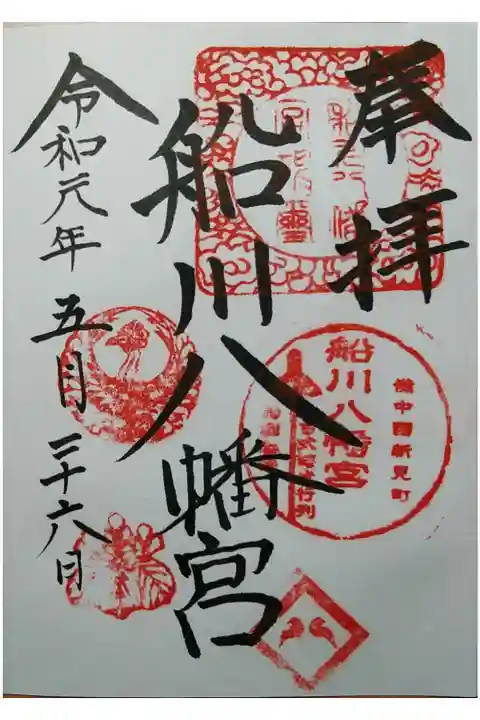 奉拝
船川八幡宮
令和元年五月二十六日
備中國新見町
船川八幡宮